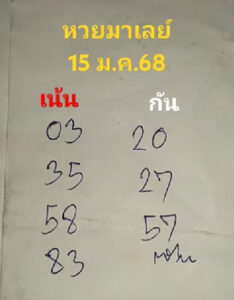 หวยมาเลย์
15 ม.ค.68
เน้น กัน
03 20
35 27
58 57
83